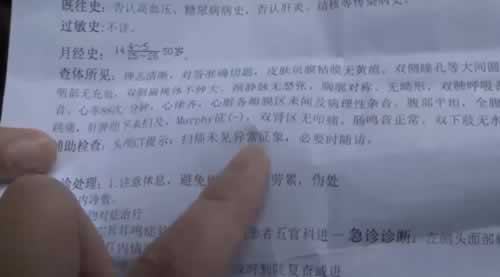 既往史：否认高血压、糖尿病病史，否认肝炎、结核等传染病史
过敏史：不详。
月经史：14 4-5/25-26 50岁。
查体所见：神志清晰，对答准确切题，皮肤巩膜粘膜无黄疸，双侧瞳孔等大同圆
咽部无充血，双侧扁桃体不肿大，颈静脉无怒张，胸廓对称、无畸形，双肺呼吸音
音、心率88次/分钟，心律齐，心脏各瓣膜区未闻及病理性杂音，腹部平坦，全腹
跳痛，肝脾肋下未扪及，Murphy征(-)，双肾区无叩痛，肠鸣音正常，双下肢无水
辅助检查：头颅CT提示：扫描未见异常征象，必要时随访。
诊处理：1.注意休息，避免 劳累，伤处
内冷敷。
物对症治疗
耳鸣症 患者五官科进一 急诊诊断：左侧头面部
耳内
院复查或进